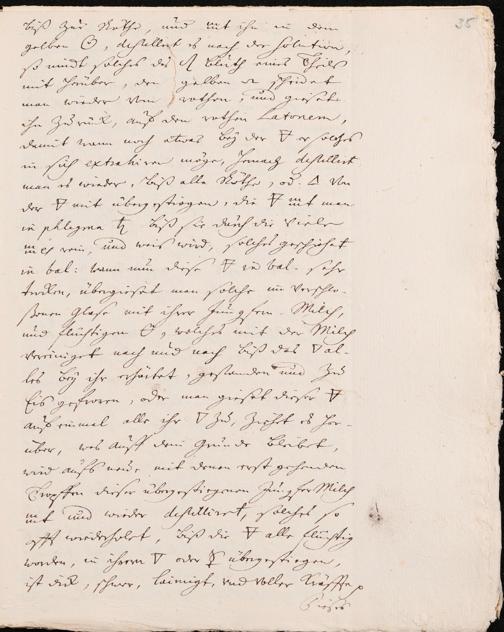 35
biß zur Röthe, und mit ihr in dem
gelben ☉, destilliret es nach der Solution,
so nimbt solches die Blüth eines Theils
mit herüber, den gelben scheidet
man wieder vom rothen, und gießet
ihn zurück, auf den rothen Latonem,
damit wann noch etwas bey der 🜃 er solches
in sich extrahiren möge, hernach destillirt
man es wieder, biß alle Röthe, od: 🜂 von
der 🜃 mit übergestiegen, die 🜃 mit man
in phlegma biß sie durch die viele
rein, und weis wird, solches geschiehet
in bal: wann nun diese 🜃 in bal. sehr
trucken, übergießet man solche im verschlo-
ßenen Glase mit ihrer Jungfern-Milch,
und flüchtigen welches mit der Milch
vereiniget nach und nach biß das al-
les bey ihr erhärtet, gestanden und zu
Eis gefroren, oder man gießet dieser 🜃
auf einmal alle ihr zu, ziehet es her-
über, was auff dem Grunde bleibet,
wird aufs neue mit denen erst gehenden
Tropffen dieser übergestiegenen Jungfer Milch
und wieder destilliret, solches so
offt wiederholet, biß die 🜃 alle flüchtig
worden, in ihrem oder übergestiegen,
ist dick, schwer, leimigt, und voller Kräffte
Dieses